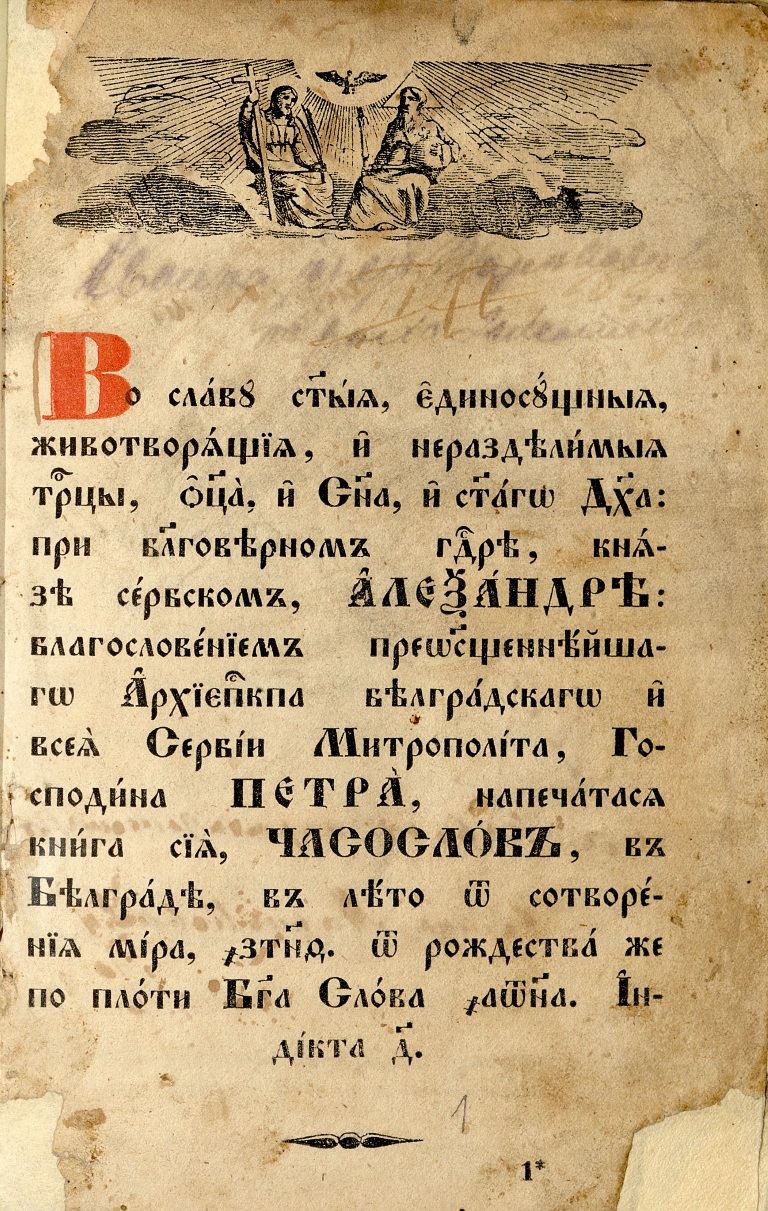 Во сла́вꙋ ст҃ы́ѧ, є҆диносꙋ́щныѧ,
животворѧ́щїѧ, и҆ нераздѣли́мыѧ
трⷪ҇цы, ѻ҆ц҃а̀, и҆ Сн҃а, и҆ ст҃а́гѡ Дх҃а:
при бл҃говѣ́рномъ гдⷭ҇рѣ, кнѧ́-
зѣ се́рбскомъ, А҆ЛЕѮА́НДРѢ:
благослове́нїемъ преѡсщ҃еннѣ́йша-
гѡ А҆рхїепⷭ҇кпа бѣлгра́дскагѡ и҆
всеѧ̀ Сербі́и Митрополі́та, Го-
споди́на ПЕТРА̀, напеча́тасѧ
кни́га сїѧ̀, ЧАСОСЛО́ВЪ, въ
Бѣлгра́дѣ, въ лѣ́то ѿ сотворе́-
нїѧ мі́ра, ҂зтн҃ѳ. ѿ рождества́ же
по пло́ти Бг҃а Сло́ва ҂аѿн҃а. І҆н-
ді́кта д҃.
1
1*